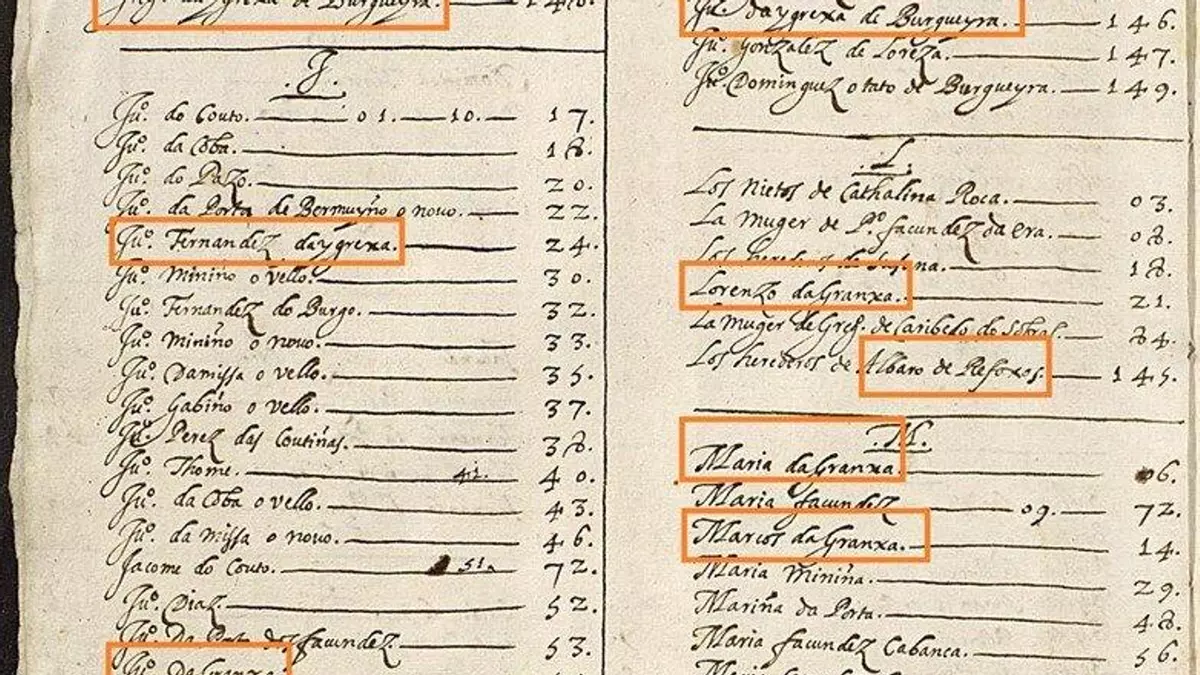 da ygrexa de Burgueyra. — 146.
.J.
Juº. do Couto. — 01. — 10. — 17.
Juº. da Coba. — 18.
Juº. do Pazo. — 20.
Juº. da Porta de Bermuyño o novo. — 22.
Juº. Fernandez daygrexa. — 24.
Juº. Miniño o vello. — 30.
Juº. Fernandez do Burgo. — 32.
Juº. Miniño o novo. — 33.
Juº. Damissa o vello. — 35.
Juº. Gabiño o vello. — 37.
Juº. Perez das Coutiñas. — 38.
Juº. Thome. — 41. — 40.
Juº. da Coba o vello. — 43.
Juº. da missa o novo. — 46.
Jacome do Couto. — 51. — 72.
Juº. Diaz. — 52.
Juº. Da Porta dez facundez. — 53.
Juº. DaGranxa.
Juº. daygrexa de Burgueyra. — 146.
Juº. Gonzalez de Loreza. — 147.
Juº. Dominguez o tato de Burgueyra. — 149.
.L.
Los Nietos de Cathalina Roca. — 03.
La Muger de Pº. facundez da era. — 08.
Los herederos de — 18.
Lorenzo daGranxa. — 21.
La Muger de Greg. de Caribelo do Sobral. — 84.
Los herederos de Albaro de Refoxos. — 145.
.M.
Maria daGranxa. — 06.
Maria facundez — 09. — 72.
Marcos daGranxa. — 14.
Maria Miniña. — 29.
Mariña da Porta. — 48.
Maria facundez Cabanca. — 56.